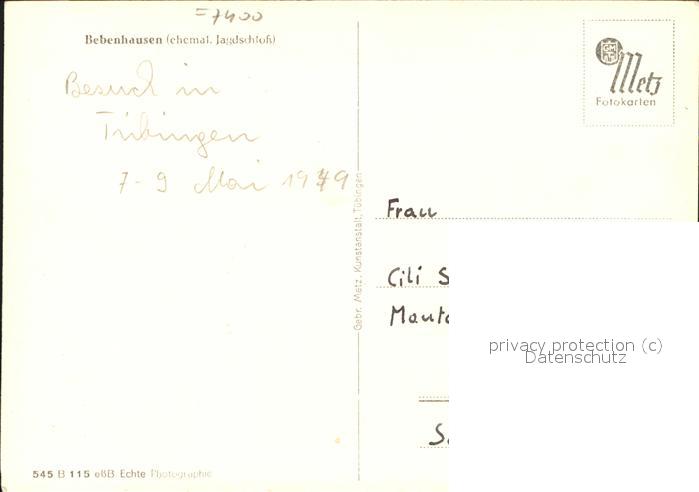 =7400
Bebenhausen (ehemal. Jagdschloß)
Besuch in
Tübingen
7-9 Mai 1979
Gebr. Metz, Kunstanstalt, Tübingen
545 B 115 eßB Echte Photographie
Metz
Fotokarten
Frau
Cili S
privacy protection (c)
Datenschutz
S